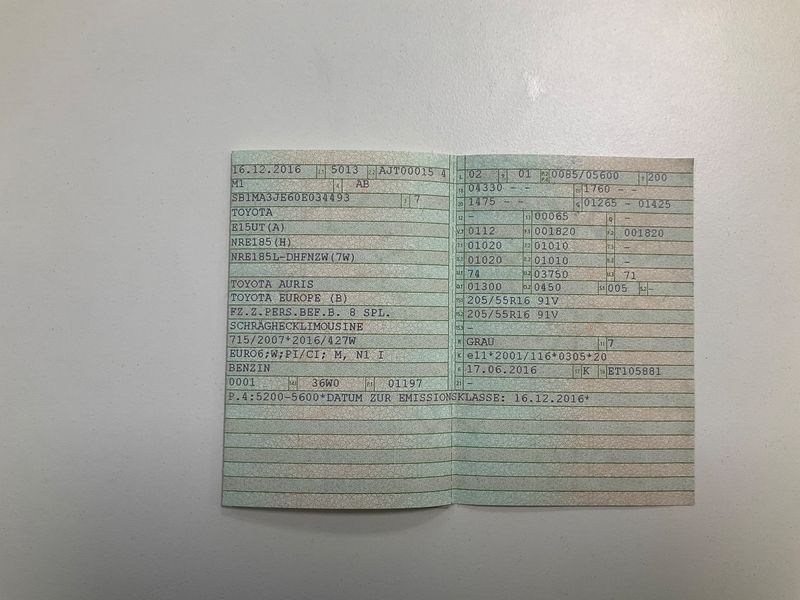 16.12.2016 5013 AJT00015 4
M1 AB
SB1MA3JE60E034493 7
TOYOTA
E15UT(A)
NRE185(H)
NRE185L-DHFNZW(7W)
TOYOTA AURIS
TOYOTA EUROPE (B)
FZ.Z.PERS.BEF.B. 8 SPL.
SCHRÄGHECKLIMOUSINE
715/2007*2016/427W
EURO6;W;PI/CI; M, N1 I
BENZIN
0001 36W0 01197
P.4:5200-5600*DATUM ZUR EMISSIONSKLASSE: 16.12.2016*
02 01 0085/05600 200
04330 - - 1760 - -
1475 - - 01265 - 01425
- 00065 -
0112 001820 001820
01020 01010 -
01020 01010 -
74 03750 71
01300 0450 005 -
205/55R16 91V
205/55R16 91V
-
GRAU 7
e11*2001/116*0305*20
17.06.2016 K ET105881
-